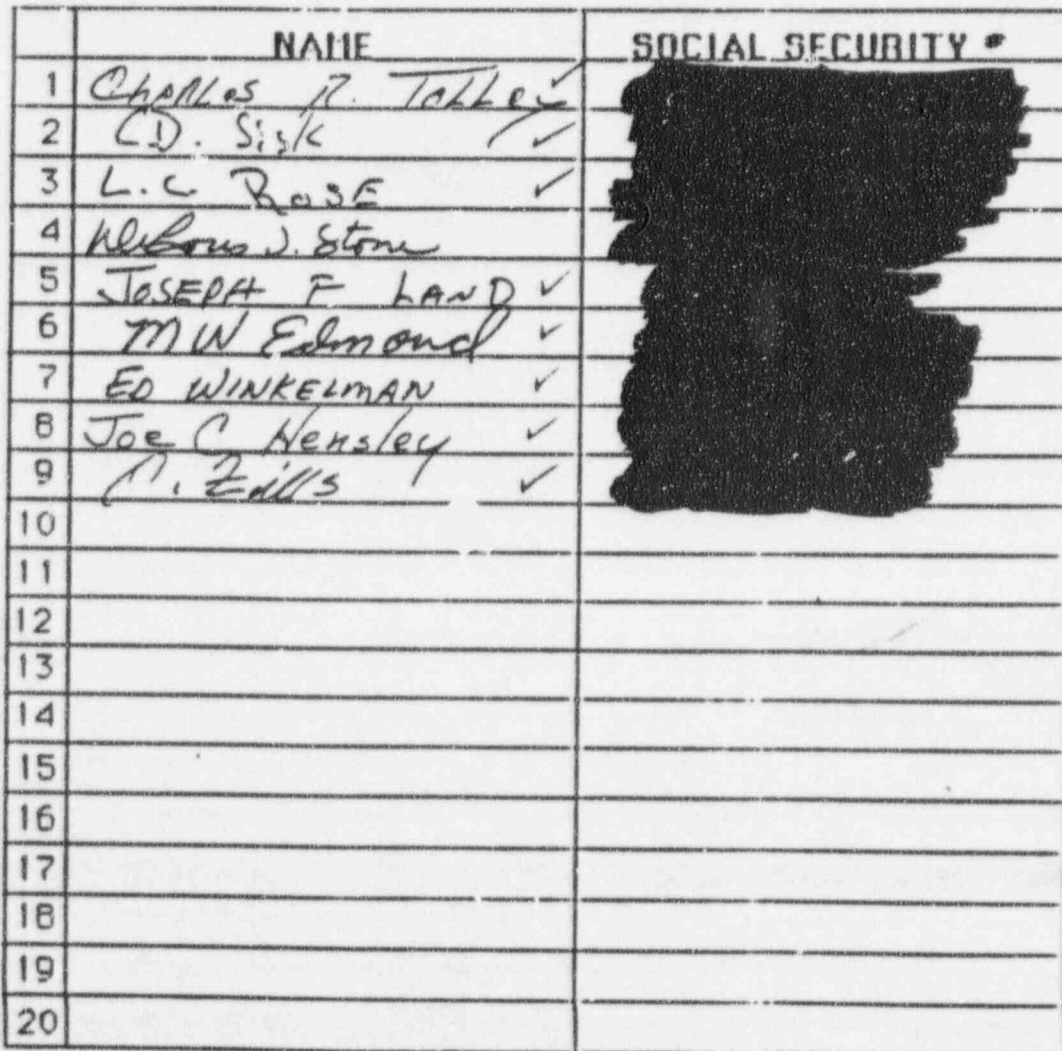 NAME SOCIAL SECURITY #
1 Charles R. Tolley ✓
2 C.D. Sisk ✓
3 L.C ROSE ✓
4 J. Stone
5 JOSEPH F LAND ✓
6 MW Edmond ✓
7 ED WINKELMAN ✓
8 Joe C Hensley ✓
9 ✓
10
11
12
13
14
15
16
17
18
19
20